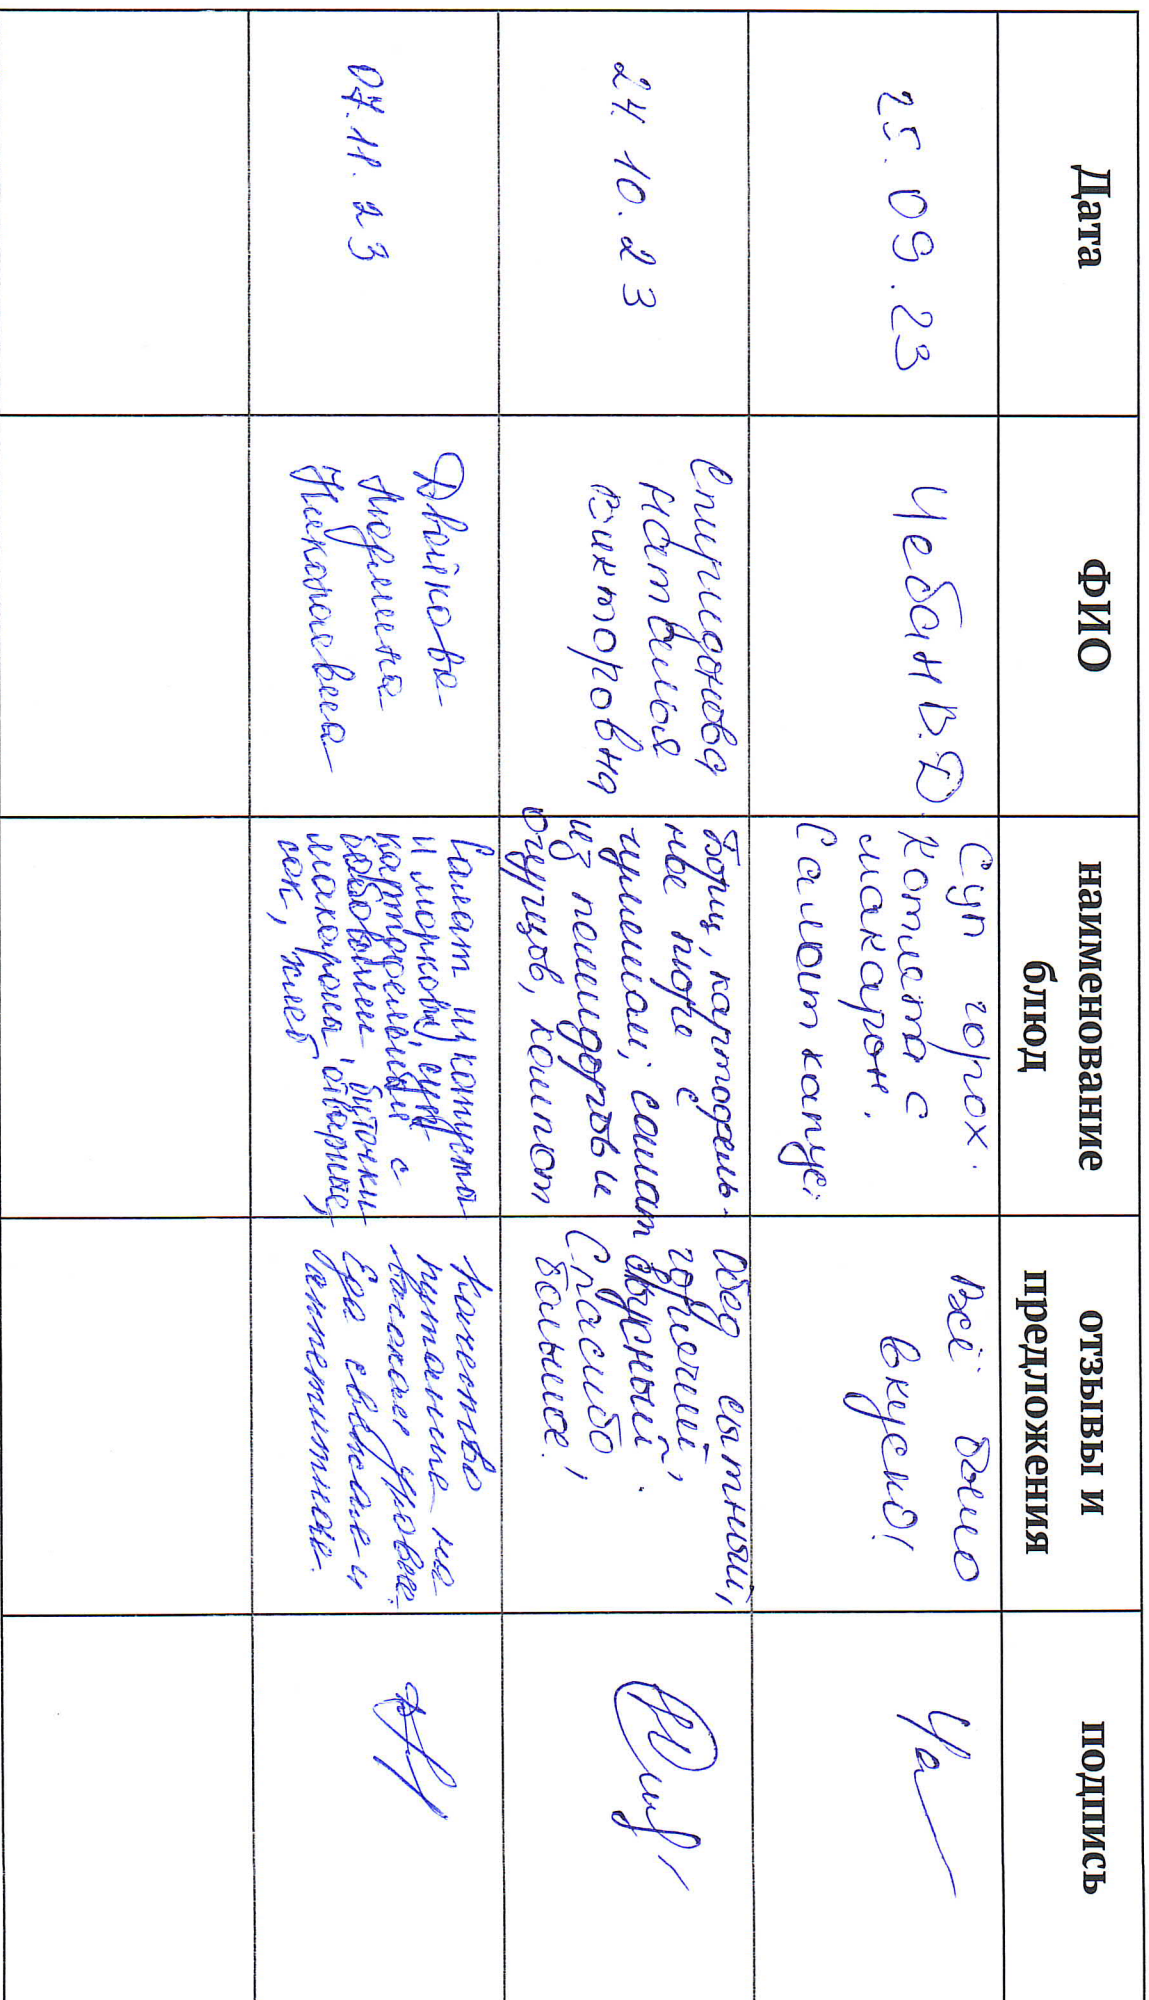 Дата
ФИО
наименование
блюд
отзывы и
предложения
подпись
25.09.23
Чебан В.Д
Суп горох.
Котлета с
макарон.
Салат капус.
Всё было
вкусно!
24.10.23
Спиридонова
Наталья
Викторовна
Борщ, картофель-
ное пюре с
гуляшом, салат
из помидоров и
огурцов, компот
Обед сытный,
горячий,
вкусный.
Спасибо
большое!
07.11.23
Двойкова
Марина
Николаевна
Салат из капусты
и моркови, суп
картофельный с
бобовыми, биточки
макароны отварные,
сок, хлеб
Качество
питание на
высоком уровне.
Еда свежая и
аппетитная.